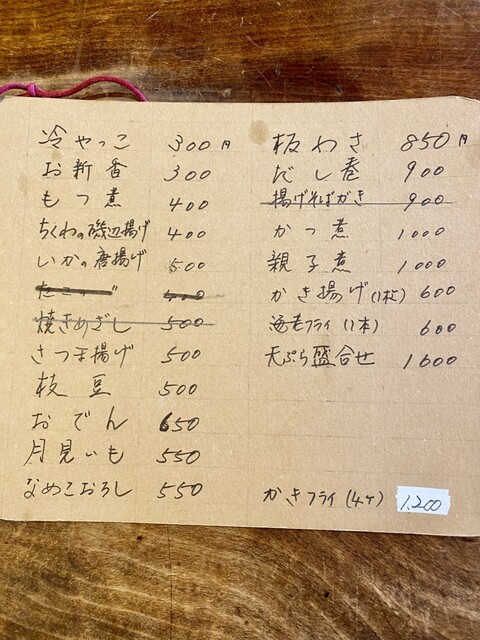 冷やっこ 300円
お新香 300
もつ煮 400
ちくわの磯辺揚げ 400
いかの唐揚げ 500
焼きめざし 500
さつま揚げ 500
枝豆 500
おでん 650
月見いも 550
なめこおろし 550
板わさ 850円
だし巻 900
揚げそばがき 900
かつ煮 1000
親子煮 1000
かき揚げ(1枚) 600
海老フライ(1本) 600
天ぷら盛合せ 1600
かきフライ(4ケ) 1,200